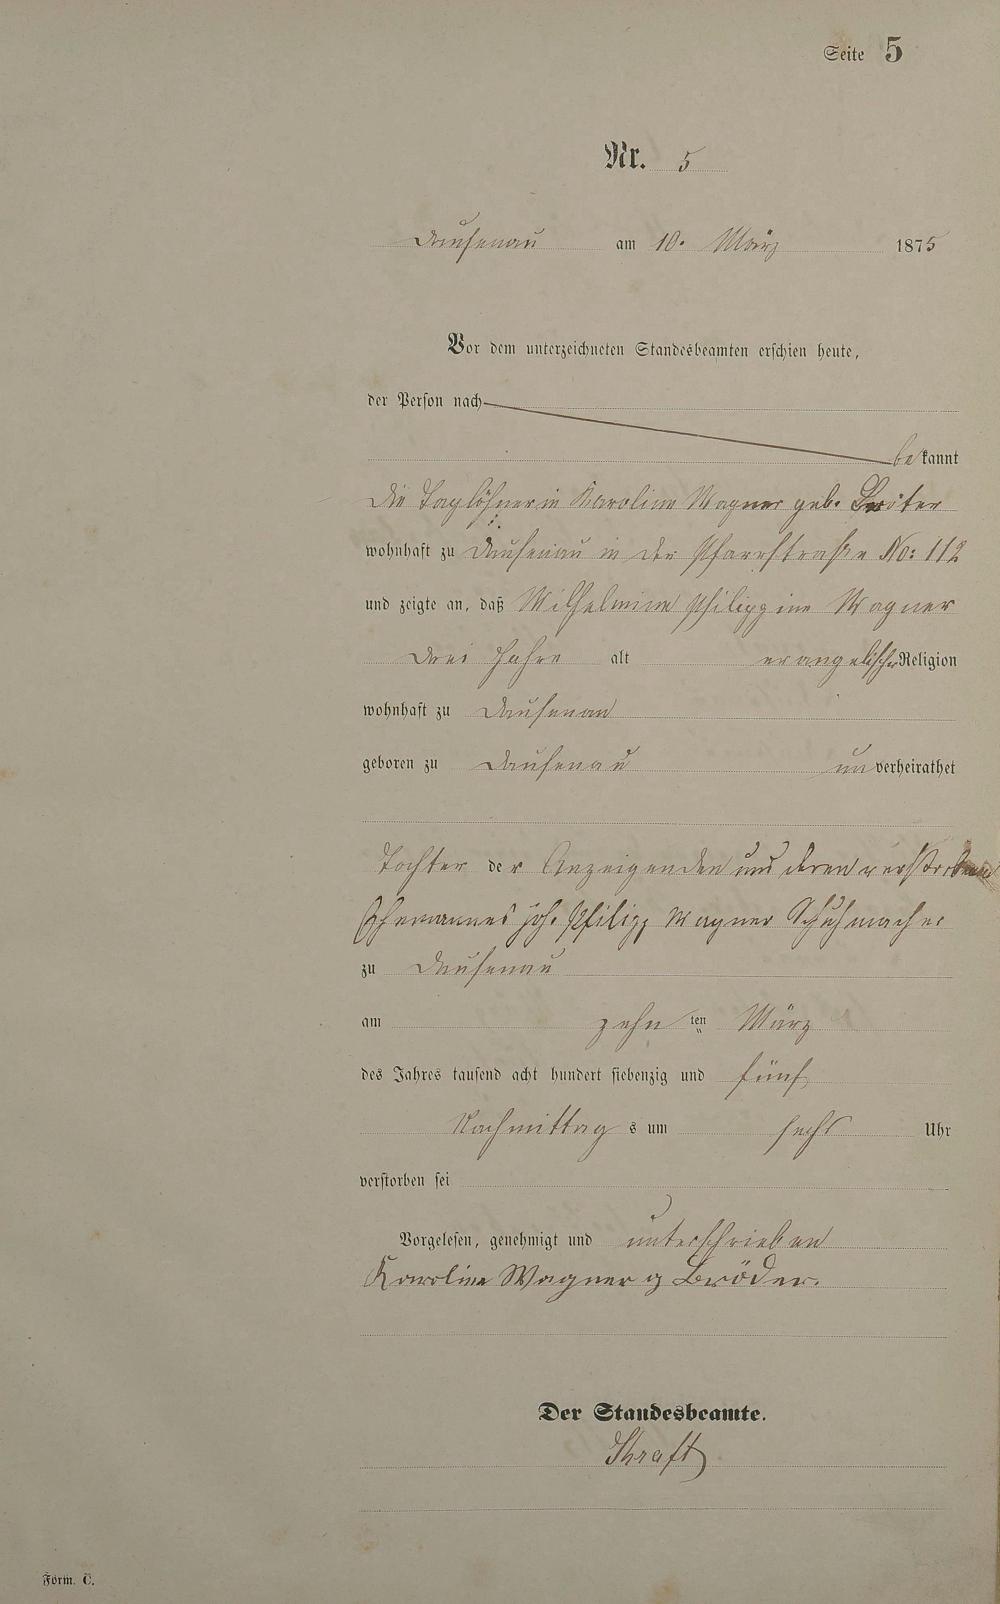 Seite 5
Nr. 5
Dausenau am 10. März 1875
Vor dem unterzeichneten Standesbeamten erschien heute,
der Person nach
bekannt
die Taglöhnerin Karoline Wagner geb. Bröter
wohnhaft zu Dausenau in der Pfarrstraße No: 112
und zeigte an, daß Wilhelmine Philippine Wagner
drei Jahre alt evangelischer Religion
wohnhaft zu Dausenau
geboren zu Dausenau unverheirathet
Tochter der Anzeigenden und deren verstorbenen
Ehemannes Joh. Philipp Wagner Schuhmacher
zu Dausenau
am zehnten März
des Jahres tausend acht hundert siebenzig und fünf
Nachmittags um sechs Uhr
verstorben sei
Vorgelesen, genehmigt und unterschrieben
Karoline Wagner g Bröder.
Der Standesbeamte.
Form. C.